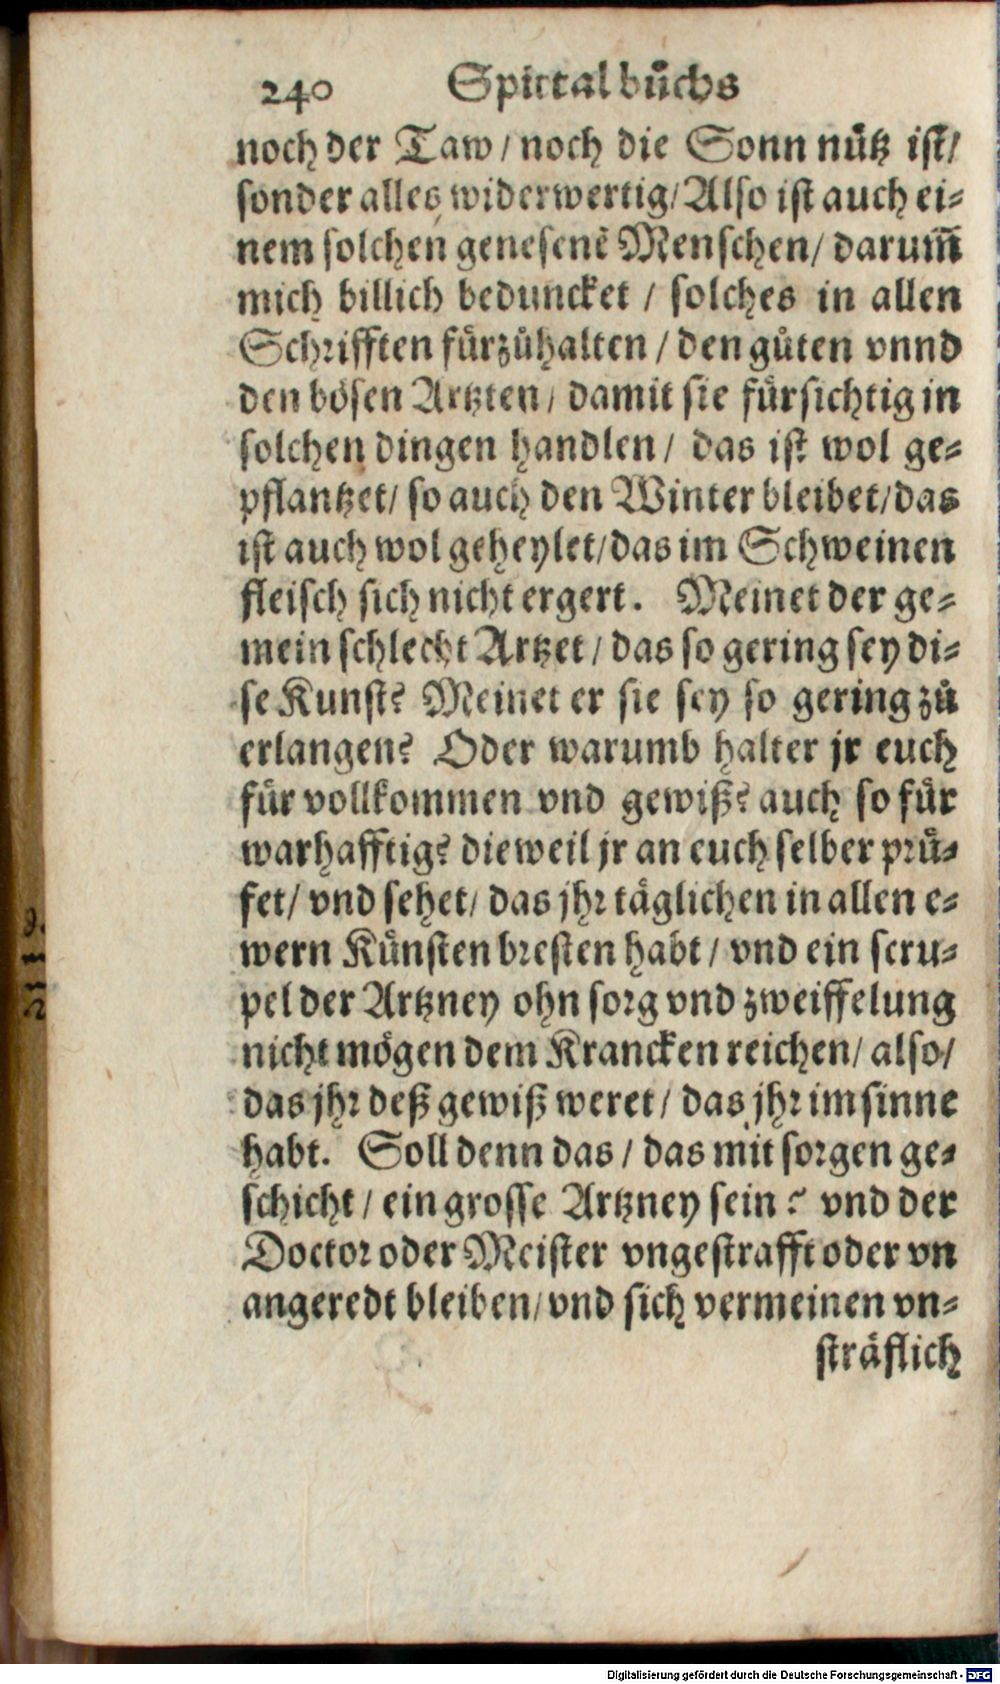 240 Spittalbůchs
noch der Taw / noch die Sonn nütz ist /
sonder alles widerwertig / Also ist auch ei⸗
nem solchen genesenē Menschen / darum̃
mich billich beduncket / solches in allen
Schrifften fürzůhalten / den gůten vnnd
den bösen Artzten / damit sie fürsichtig in
solchen dingen handlen / das ist wol ge⸗
pflantzet / so auch den Winter bleibet / das
ist auch wol geheylet / das im Schweinen
fleisch sich nicht ergert. Meinet der ge⸗
mein schlecht Artzet / das so gering sey di⸗
se Kunst? Meinet er sie sey so gering zů
erlangen? Oder warumb haltet jr euch
für vollkommen vnd gewiß? auch so für
warhafftig? dieweil jr an euch selber prü⸗
fet / vnd sehet / das jhr täglichen in allen e⸗
wern Künsten bresten habt / vnd ein scru⸗
pel der Artzney ohn sorg vnd zweiffelung
nicht mögen dem Krancken reichen / also /
das jhr deß gewiß weret / das jhr im sinne
habt. Soll denn das / das mit sorgen ge⸗
schicht / ein grosse Artzney sein? vnd der
Doctor oder Meister vngestrafft oder vn
angeredt bleiben / vnd sich vermeinen vn⸗
sträflich
Digitalisierung gefördert durch die Deutsche Forschungsgemeinschaft - DFG